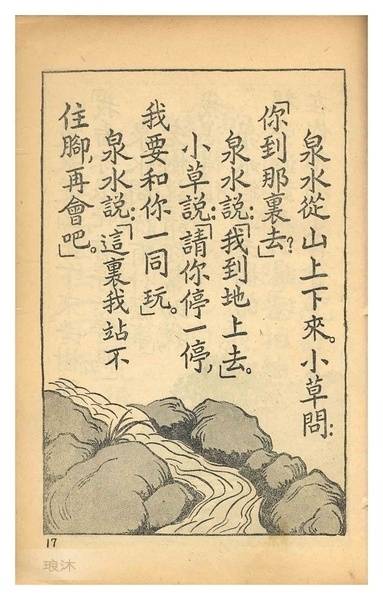 泉水從山上下來。小草問：
「你到那裏去？」
泉水說：「我到地上去。」
小草說：「請你停一停，
我要和你一同玩。」
泉水說：「這裏我站不
住腳，再會吧。」
17
琅沐